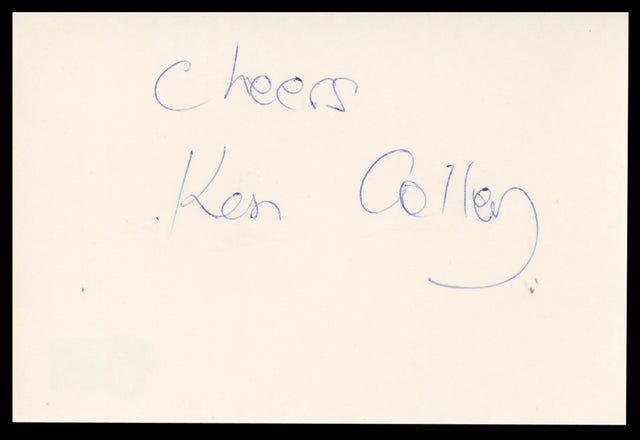 Cheers
Ken Colley